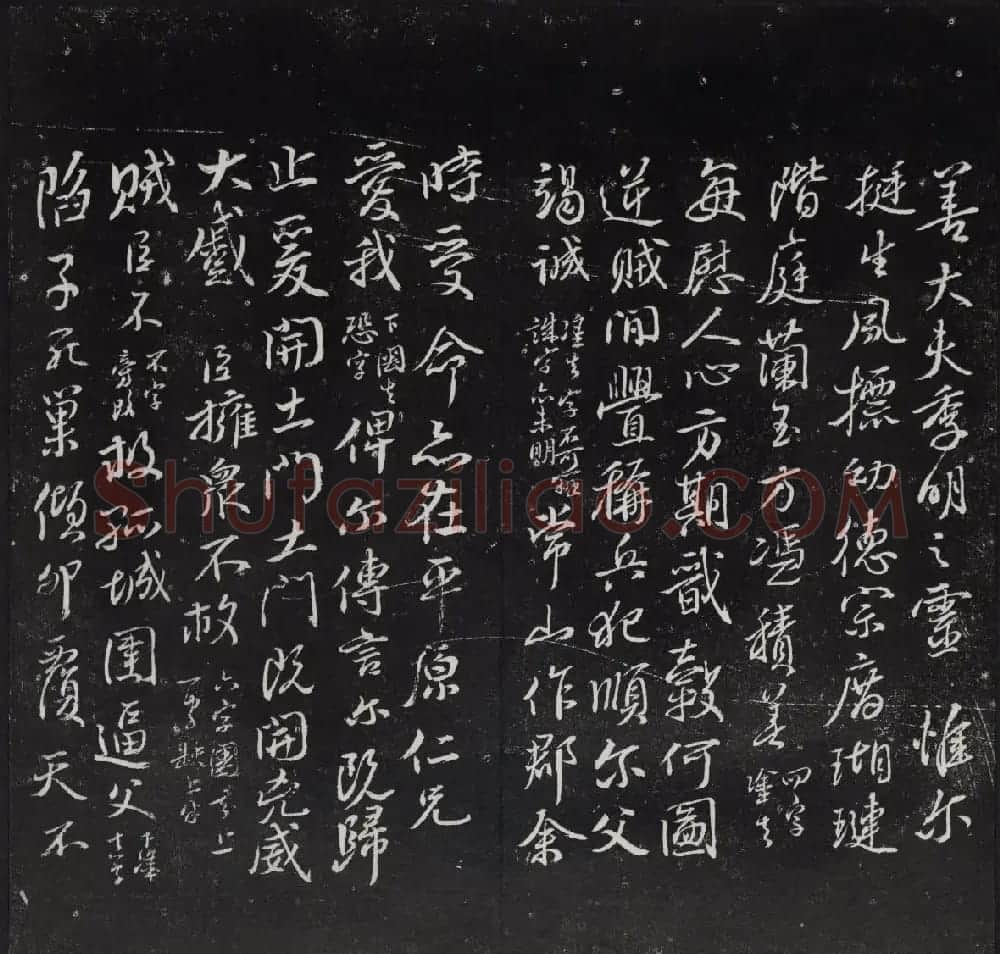 善大夫季明之靈 惟尔
挺生夙標幼德宗廟瑚璉
階庭蘭玉方憑積善 四字塗去
每慰人心方期戩穀何圖
逆賊間釁稱兵犯順尔父
竭誠 塗去字不可 誅字亦未明 常山作郡余
時受命亦在平原仁兄
愛我 下圈去恐字 俾尔傳言尔既歸
止爰開土門土門既開兇威
大蹙 臣擁衆不救 六字圈去上
賊臣不 不字旁改 救孤城圍逼父 下塗
陷子死巢傾卵覆天不
Shufaziliao.COM